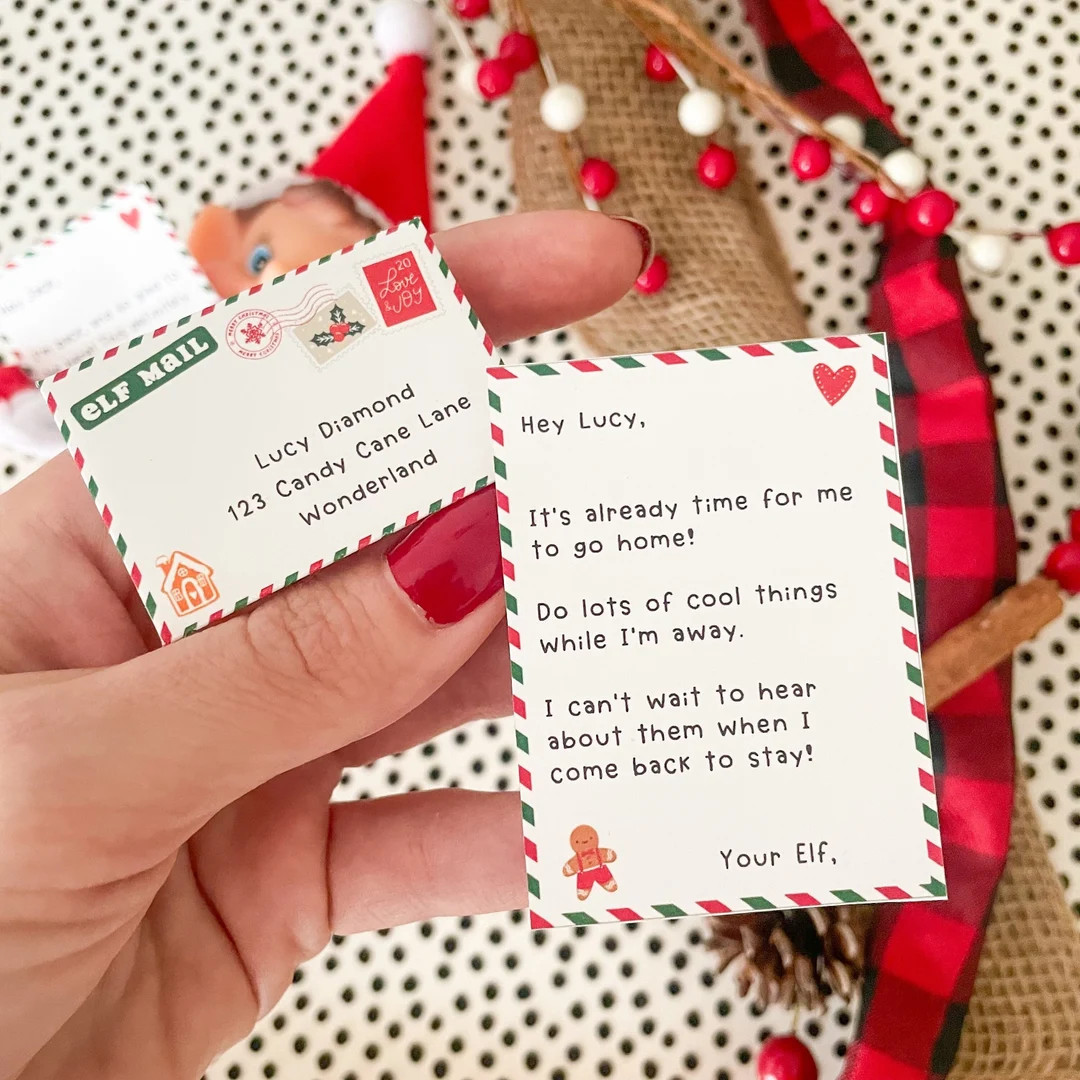 eLF MaiL
MERRY CHRISTMAS
MERRY CHRISTMAS
20
Love
& JOY
Lucy Diamond
123 Candy Cane Lane
Wonderland
Hey Lucy,
It's already time for me
to go home!
Do lots of cool things
while I'm away.
I can't wait to hear
about them when I
come back to stay!
Your Elf,